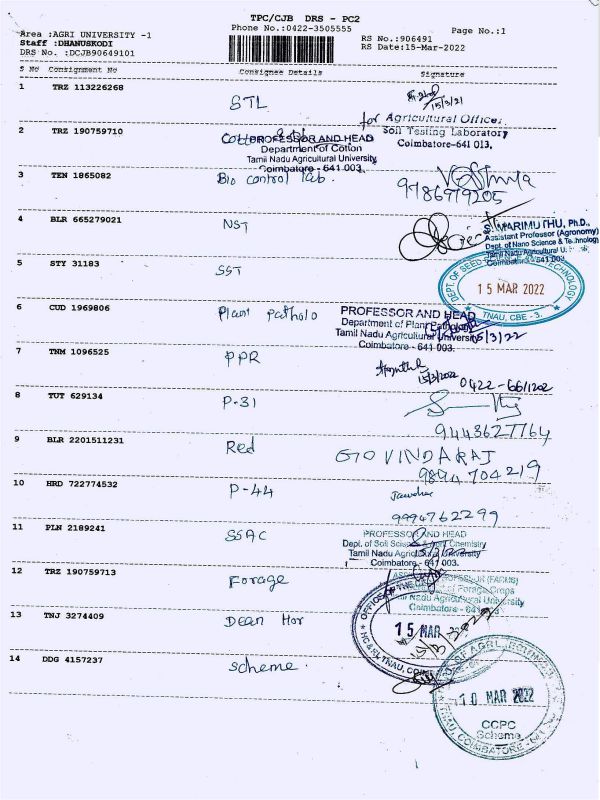 TPC/CJB DRS - PC2
Area :AGRI UNIVERSITY -1 Phone No.:0422-3505555 Page No.:1
Staff :DHANUSKODI RS No.:906491
DRS No. :DCJB90649101 RS Date:15-Mar-2022
S No Consignment No Consignee Details Signature
1 TRZ 113226268 STL 15/3/21
for Agricultural Officer
2 TRZ 190759710 Cotton PROFESSOR AND HEAD Soil Testing Laboratory
Department of Cotton Coimbatore-641 013.
Tamil Nadu Agricultural University
Coimbatore-641 003.
3 TEN 1865082 Bio control lab.
9786919205
4 BLR 665279021 NST
S. MARIMUTHU, Ph.D.,
Assistant Professor (Agronomy)
Dept. of Nano Science & Technology
Tamil Nadu Agricultural U
Coimbatore-641 003
5 STY 31183 SST
DEPT. OF SEED TECHNOLOGY
15 MAR 2022
TNAU, CBE - 3.
6 CUD 1969806 Plant patholo PROFESSOR AND HEAD
Department of Plant Pathology
Tamil Nadu Agricultural University
15/3/22
Coimbatore - 641 003.
7 TNM 1096525 PPR
15/3/2022 0422-6611202
8 TUT 629134 P-31
9443627764
9 BLR 2201511231 Red GOVINDARAJ
9894704219
10 HRD 722774532 P-44
9994762299
11 PLN 2189241 SSAC PROFESSOR AND HEAD
Dept. of Soil Science & Agrl Chemistry
Tamil Nadu Agricultural University
Coimbatore - 641 003.
12 TRZ 190759713 Forage
PROFESSOR (FACMS)
of Forage Crops
Tamil Nadu Agricultural University
Coimbatore - 641 003
13 TNJ 3274409 Dean Hor
OFFICE OF THE
15 MAR
TNAU, COIMB
15/3/2022
14 DDG 4157237 Scheme.
10 MAR 2022
CCPC
Scheme
TNAU, COIMBATORE - 641